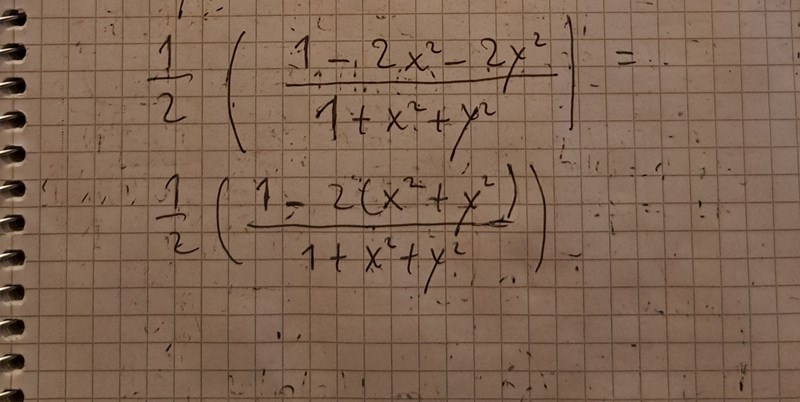 1/2 ( (1 - 2x² - 2y²) / (1 + x² + y²) ) =
1/2 ( (1 - 2(x² + y²)) / (1 + x² + y²) )